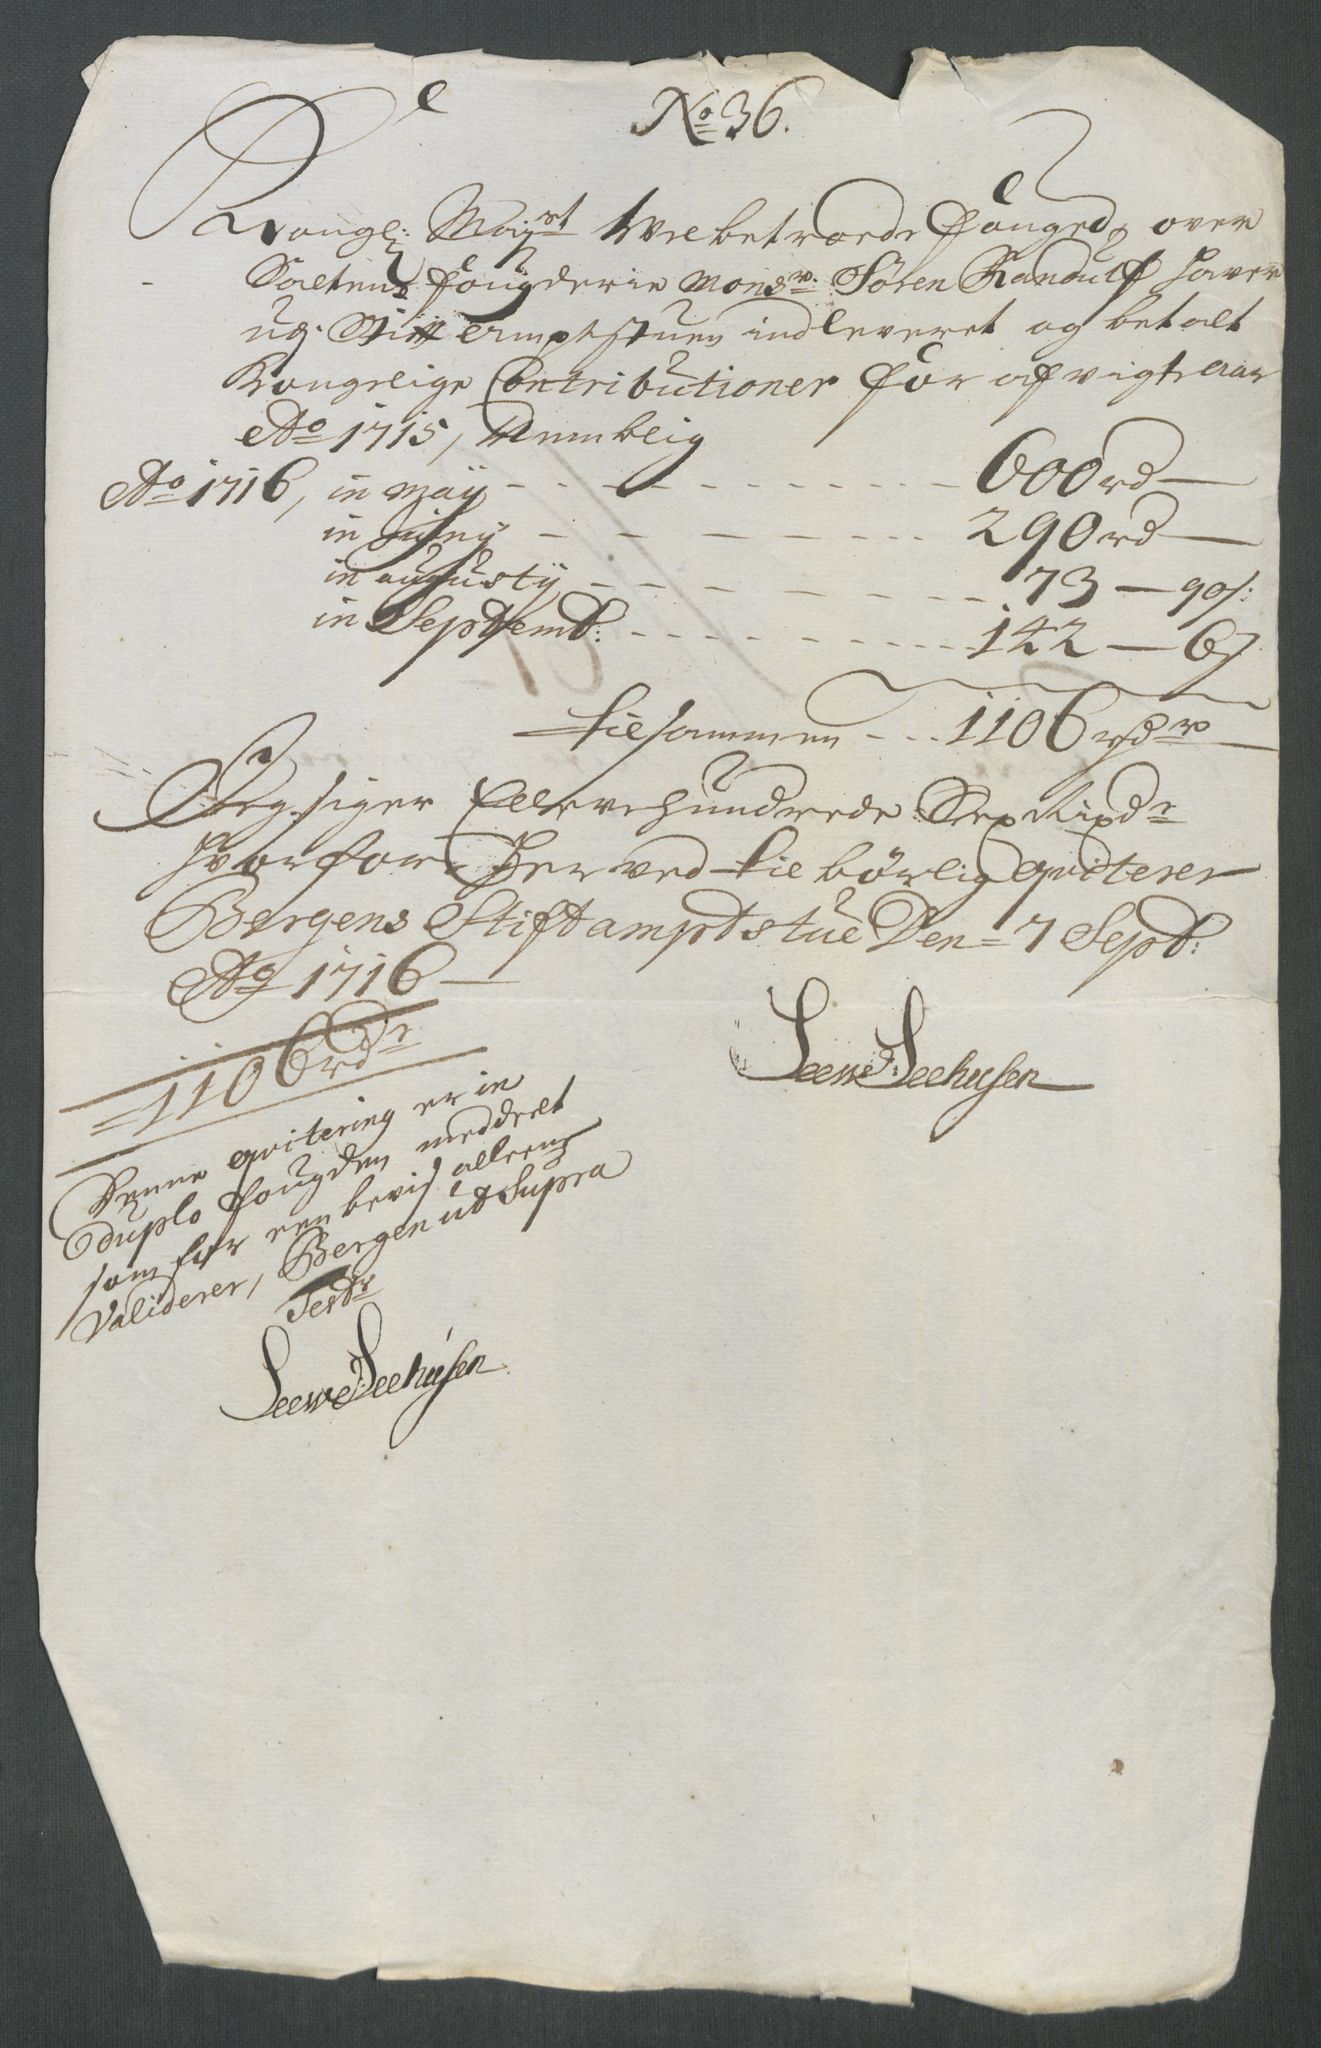 No 36.
Kongl: Mayst Velbetroede Fouged, over
Saltens Fougderie Monsr. Sören Randulf haver
udj Stift Amptstuen indleveret og betalt
Kongelige Contributioner for afvigte aar
Ao 1715, Nemblig
Ao 1716, in Maÿ - - - - - - - - 600 rd —
in Junÿ - - - - - - - 290 rd —
in augustÿ - - - - - - - 73 — 90 s:
in Septemb: - - - - - - - - 142 — 6 s
tilsammen - - - 1106 rdr —
Jeg siger Ellevehundrede Sex Rixdr
hvorfor herved tilbörlig qviterer
Bergens Stiftamptstue Den = 7 Septb:
Ao 1716 —
Leewe: Seehusen
= 1106 rdr
Denne qvitering er in
duplo Fougden meddeelt
som for een bevis alleene
Validerer, Bergen ut Supra
Testr
Leewe: Seehusen